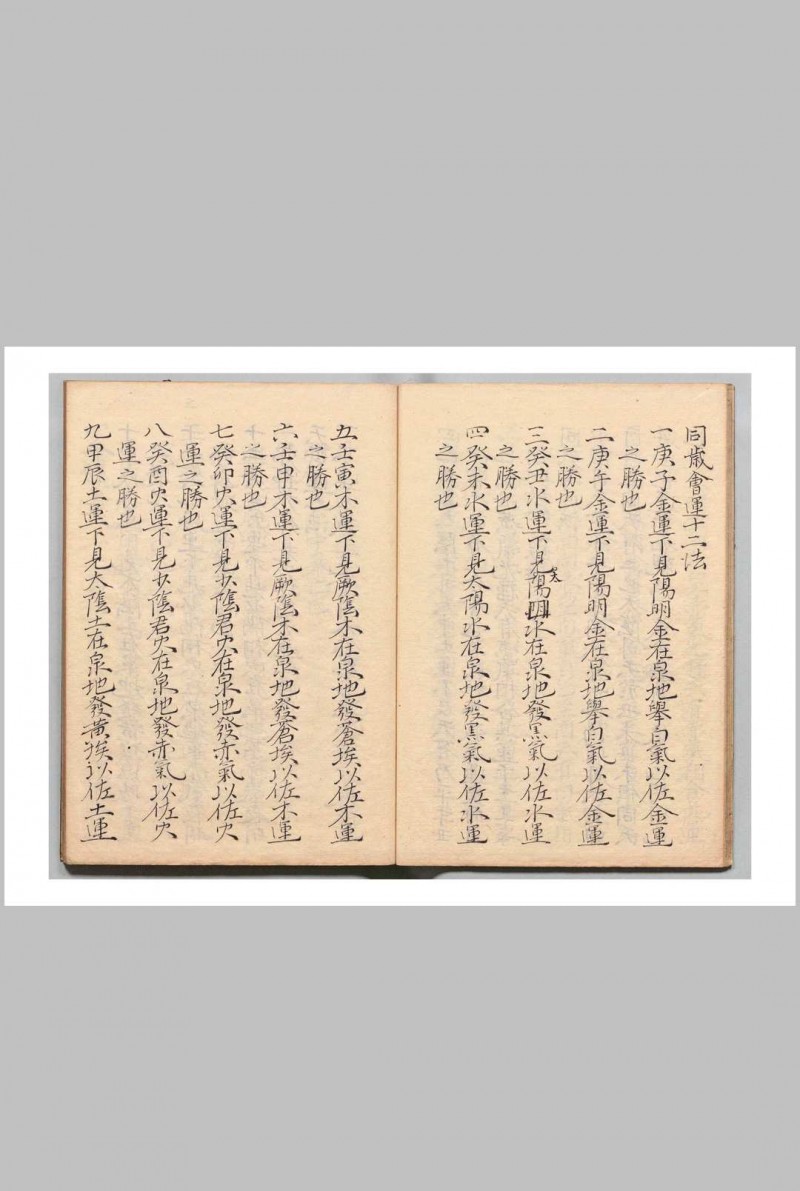 同歲會運十二法
一庚子金運下見陽明金在泉地舉白氣以佐金運
之勝也
二庚午金運下見陽明金在泉地舉白氣以佐金運
之勝也
三癸丑水運下見陽明太水在泉地發黑氣以佐水運
之勝也
四癸未水運下見太陽水在泉地發黑氣以佐水運
之勝也
五壬寅木運下見厥陰木在泉地發蒼埃以佐木運
之勝也
六壬申木運下見厥陰木在泉地發蒼埃以佐木運
之勝也
七癸卯火運下見少陰君火在泉地發赤氣以佐火
運之勝也
八癸酉火運下見少陰君火在泉地發赤氣以佐火
運之勝也
九甲辰土運下見太陰土在泉地發黃埃以佐土運